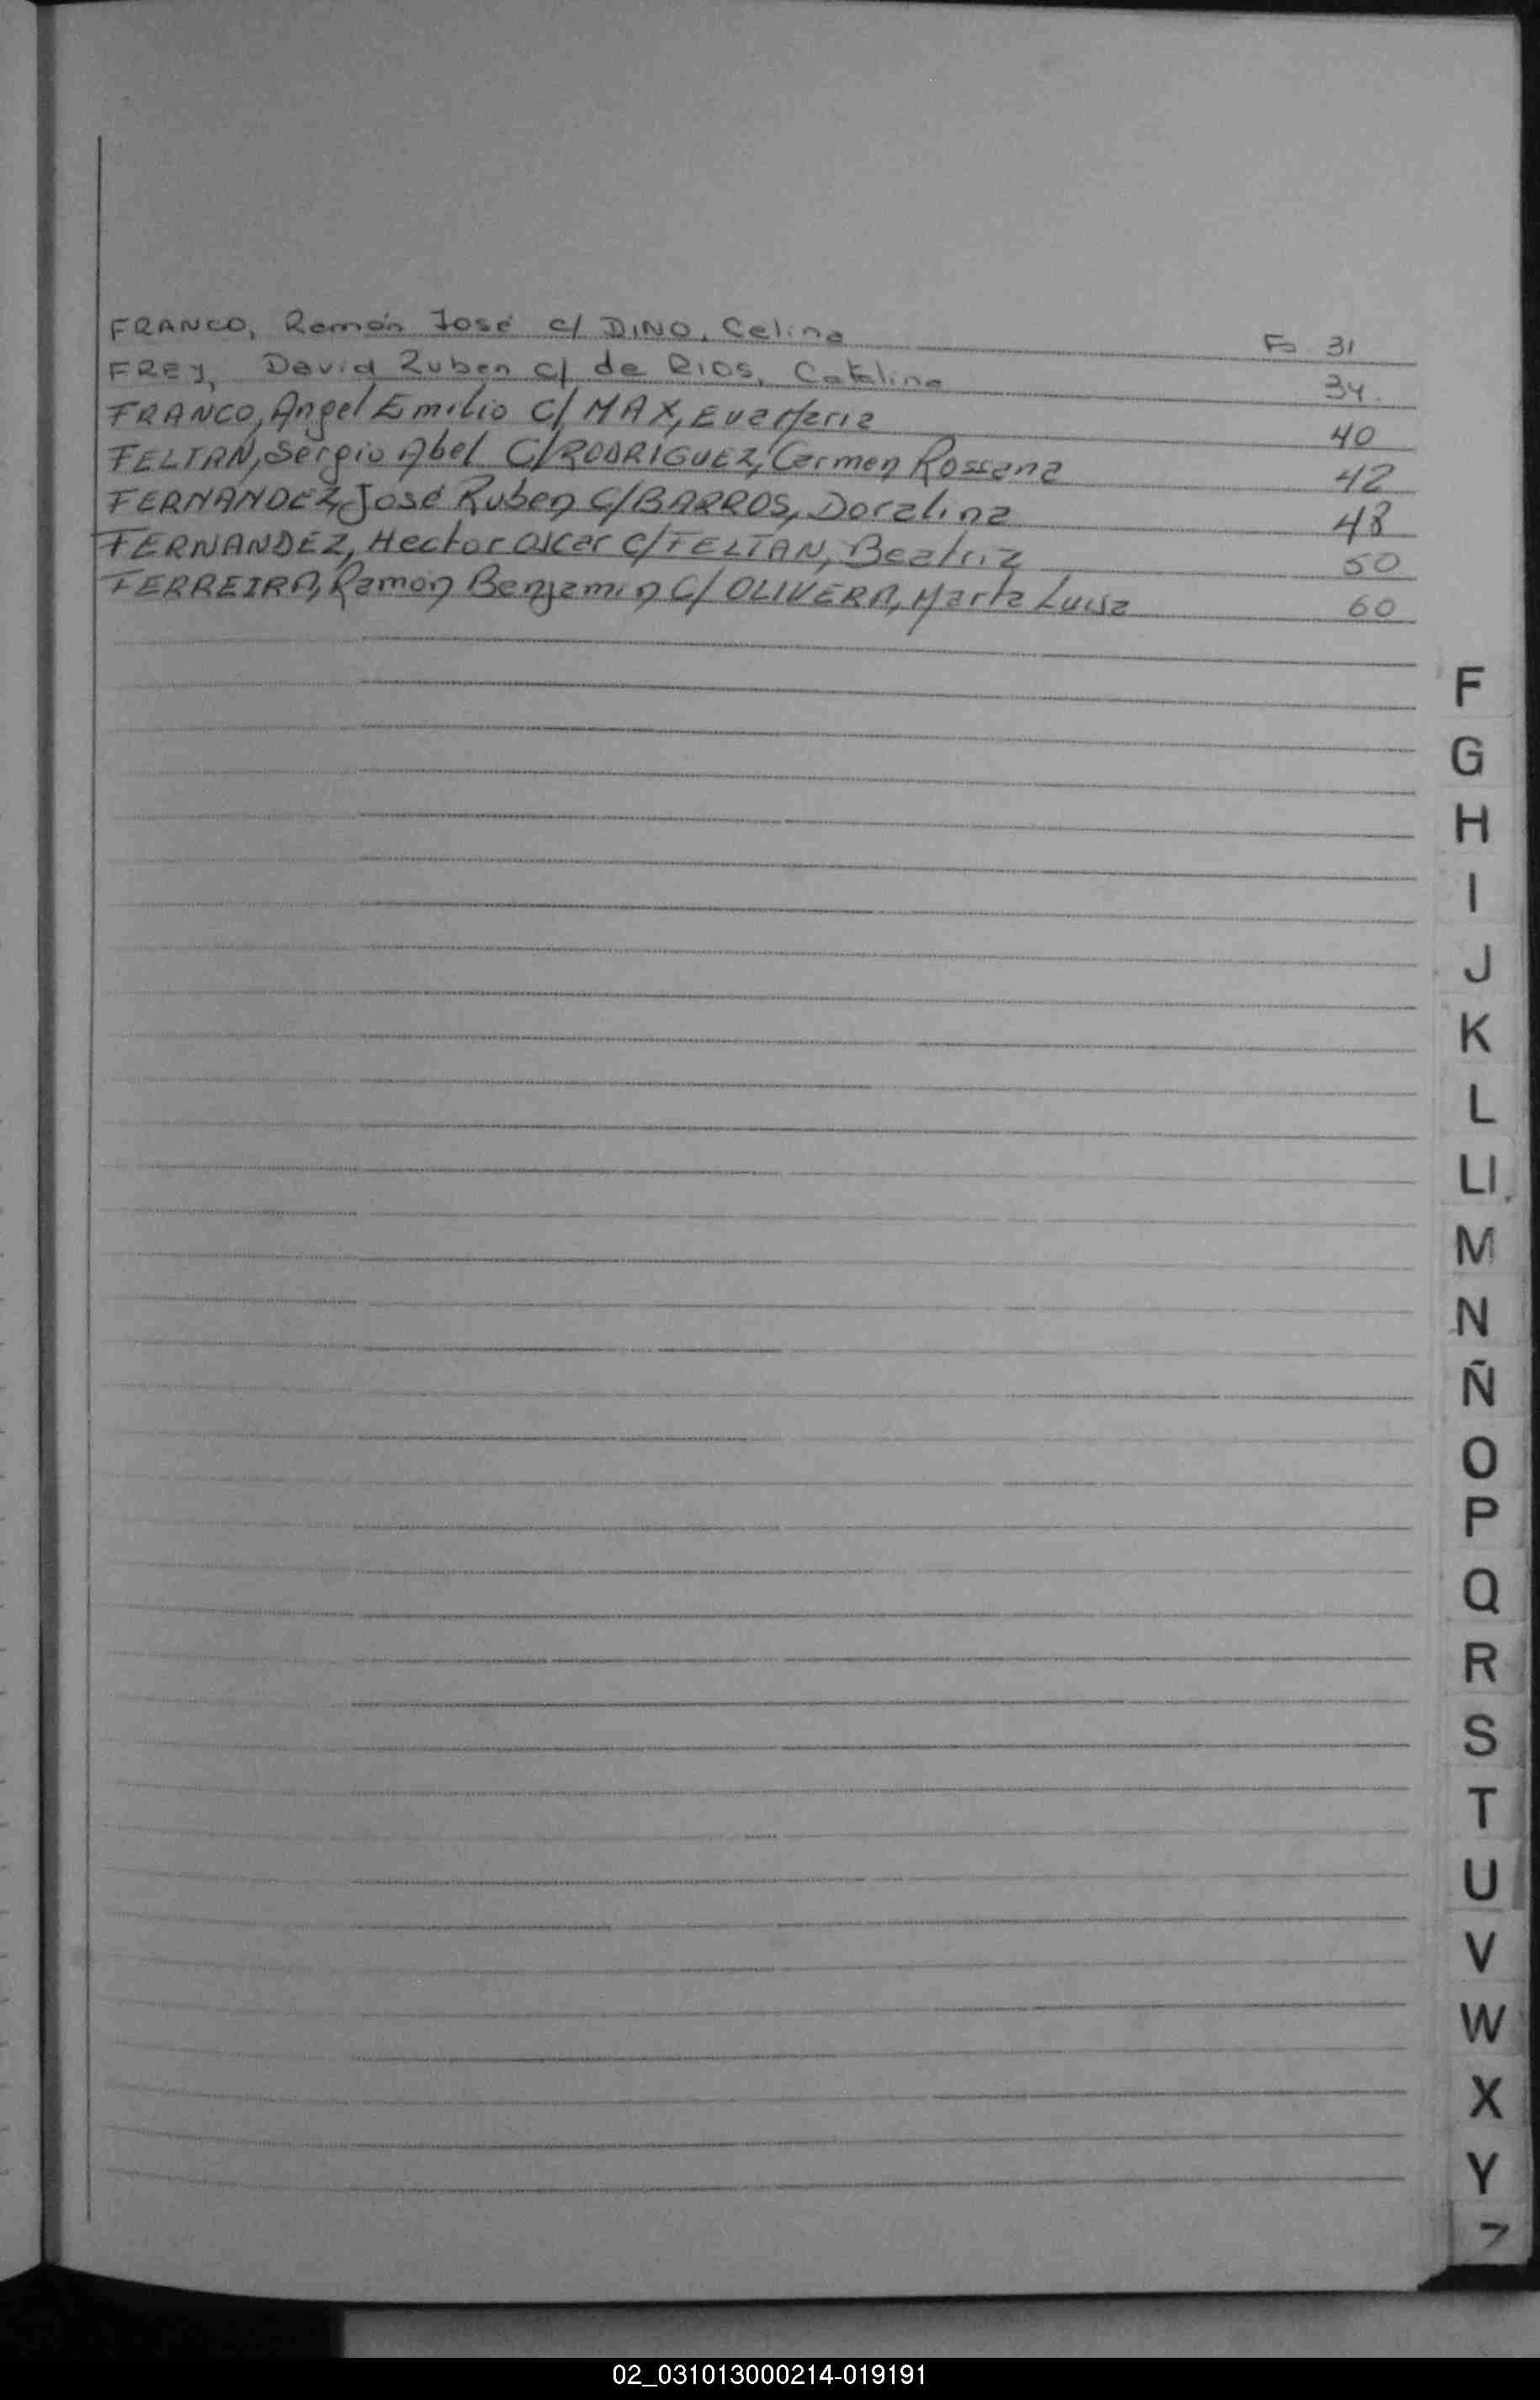 FRANCO, Ramón José c/ DINO, Celina Fo 31
FREY, David Ruben c/ de RIOS, Catalina 34.
FRANCO, Angel Emilio C/ MAX, Eva Maria 40
FELTAN, Sergio Abel C/RODRIGUEZ, Carmen Rossana 42
FERNANDEZ, José Ruben C/BARROS, Doralina 48
FERNANDEZ, Hector Oscar C/FELTAN, Beatriz 50
FERREIRA, Ramón Benjamin C/ OLIVERA, Marta Luisa 60
F
G
H
I
J
K
L
Ll
M
N
Ñ
O
P
Q
R
S
T
U
V
W
X
Y
Z
02_031013000214-019191